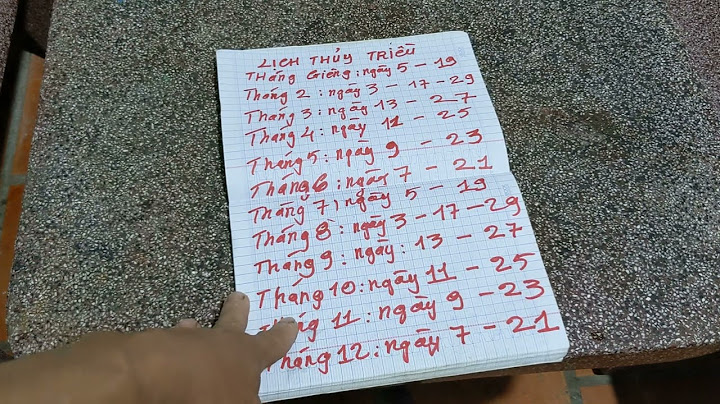 LỊCH THỦY TRIỀU
THáng Giêng: ngày 5 - 19
Tháng 2: ngày 3 - 17 - 29
Tháng 3: ngày 13 - 27
Tháng 4: ngày 11 - 25
Tháng 5: ngày 9 - 23
Tháng 6: ngày 7 - 21
Tháng 7: ngày 5 - 19
Tháng 8: ngày 3 - 17 - 29
Tháng 9: ngày: 13 - 27
Tháng 10: ngày 11 - 25
Tháng 11: ngày 9 - 23
Tháng 12: ngày 7 - 21